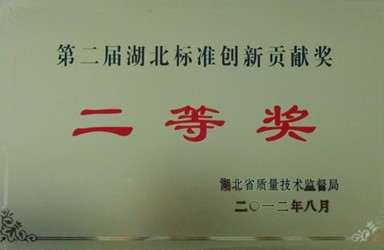 第二届湖北标准创新贡献奖
二等奖
湖北省质量技术监督局
二〇一二年八月